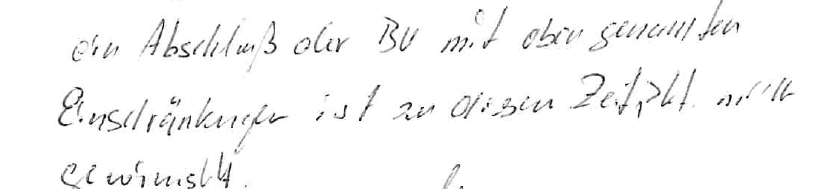 ein Abschluß der BU mit oben genannten
Einschränkungen ist zu diesem Zeitpkt. nicht
gewünscht.